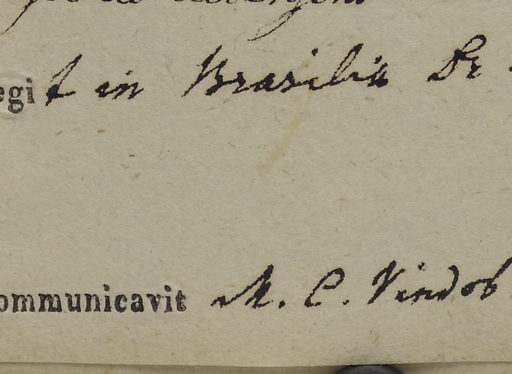 egit in Brasilia Dr
ommunicavit M. C. Vindob